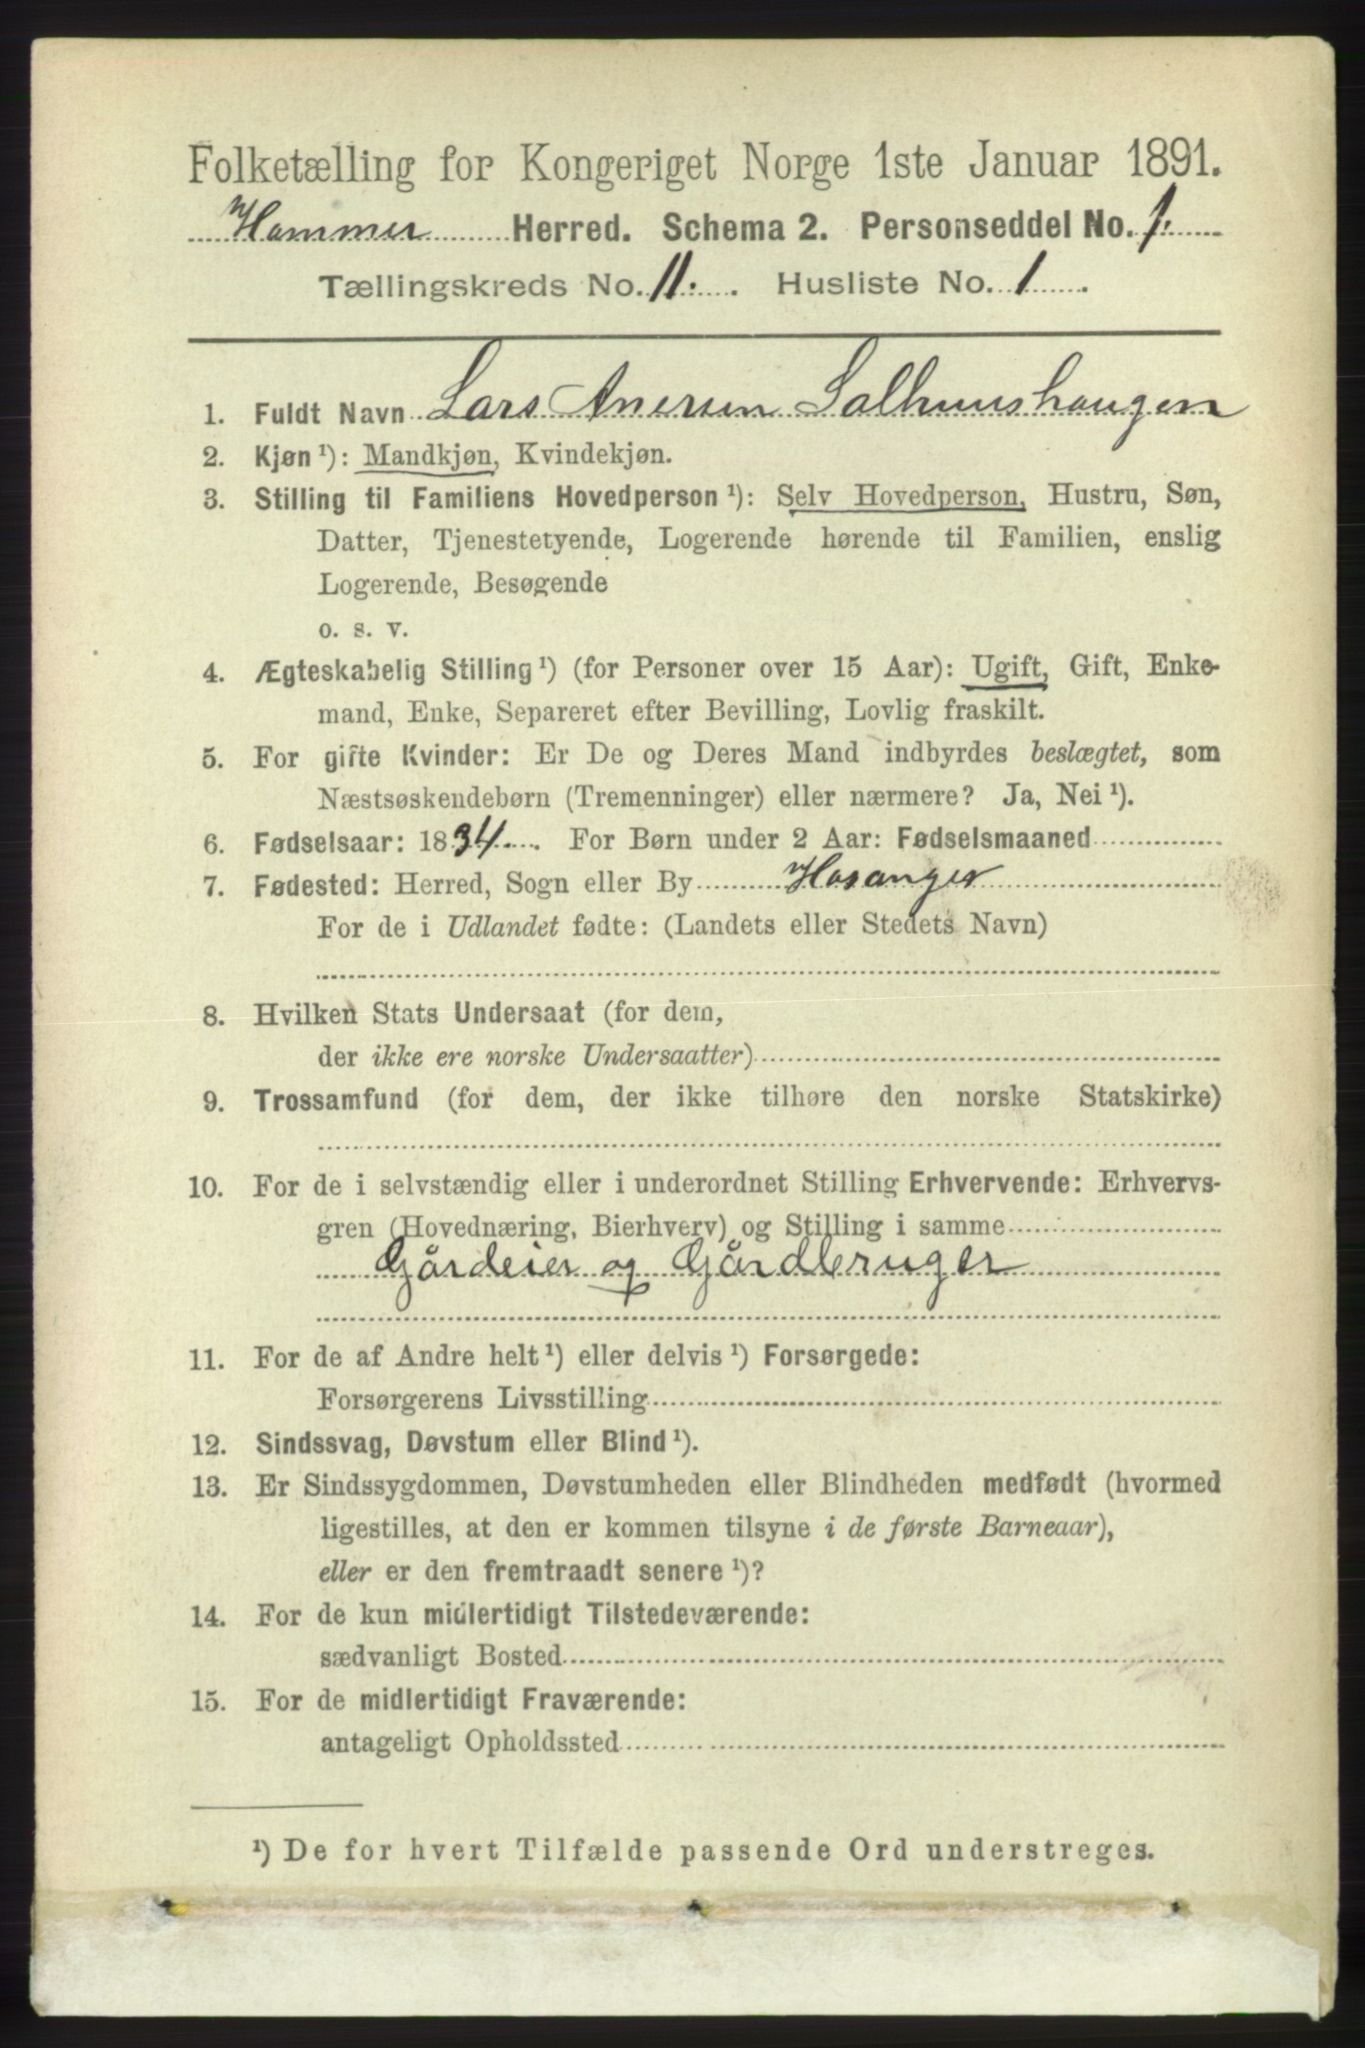 Folketælling for Kongeriget Norge 1ste Januar 1891.
Hammer Herred. Schema 2. Personseddel No. 1.
Tællingskreds No. 11. Husliste No. 1.
1. Fuldt Navn Lars Anersen Salhuushaugen
2. Kjøn ¹): Mandkjøn, Kvindekjøn.
3. Stilling til Familiens Hovedperson ¹): Selv Hovedperson, Hustru, Søn,
Datter, Tjenestetyende, Logerende hørende til Familien, enslig
Logerende, Besøgende
o. s. v.
4. Ægteskabelig Stilling ¹) (for Personer over 15 Aar): Ugift, Gift, Enke-
mand, Enke, Separeret efter Bevilling, Lovlig fraskilt.
5. For gifte Kvinder: Er De og Deres Mand indbyrdes beslægtet, som
Næstsøskendebørn (Tremenninger) eller nærmere? Ja, Nei ¹).
6. Fødselsaar: 1834. For Børn under 2 Aar: Fødselsmaaned
7. Fødested: Herred, Sogn eller By Hosanger
For de i Udlandet fødte: (Landets eller Stedets Navn)
8. Hvilken Stats Undersaat (for dem,
der ikke ere norske Undersaatter)
9. Trossamfund (for dem, der ikke tilhøre den norske Statskirke)
10. For de i selvstændig eller i underordnet Stilling Erhvervende: Erhvervs-
gren (Hovednæring, Bierhverv) og Stilling i samme
Gårdeier og Gårdbruger
11. For de af Andre helt ¹) eller delvis ¹) Forsørgede:
Forsørgerens Livsstilling
12. Sindssvag, Døvstum eller Blind ¹).
13. Er Sindssygdommen, Døvstumheden eller Blindheden medfødt (hvormed
ligestilles, at den er kommen tilsyne i de første Barneaar),
eller er den fremtraadt senere ¹)?
14. For de kun midlertidigt Tilstedeværende:
sædvanligt Bosted
15. For de midlertidigt Fraværende:
antageligt Opholdssted
¹) De for hvert Tilfælde passende Ord understreges.